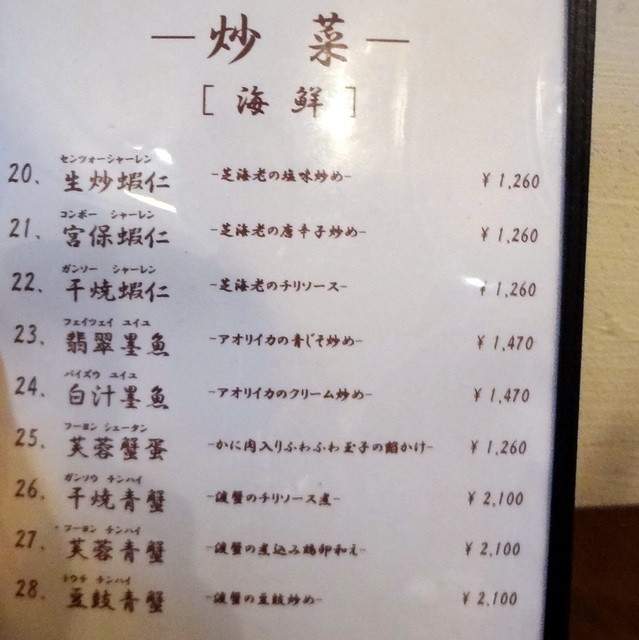 ―炒 菜―
[海 鮮]
センツォーシャーレン
20. 生炒蝦仁 -芝海老の塩味炒め- ¥1,260
コンポー シャーレン
21. 宮保蝦仁 -芝海老の唐辛子炒め- ¥1,260
ガンソー シャーレン
22. 干焼蝦仁 -芝海老のチリソース- ¥1,260
フェイツェイ ユイユ
23. 翡翠墨魚 -アオリイカの青じそ炒め- ¥1,470
バイズウ ユイユ
24. 白汁墨魚 -アオリイカのクリーム炒め- ¥1,470
フーヨン シェータン
25. 芙蓉蟹蛋 -かに肉入りふわふわ玉子の餡かけ- ¥1,260
ガンソウ チンハイ
26. 干焼青蟹 -渡蟹のチリソース煮- ¥2,100
フーヨン チンハイ
27. 芙蓉青蟹 -渡蟹の煮込み鶏卵和え- ¥2,100
トウチ チンハイ
28. 豆鼓青蟹 -渡蟹の豆鼓炒め- ¥2,100